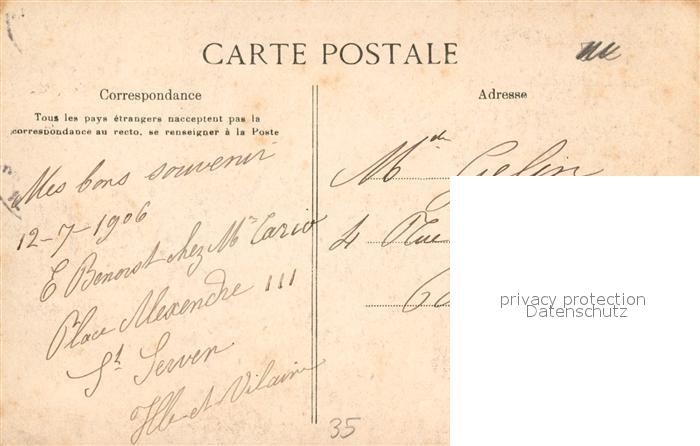 CARTE POSTALE
Correspondance
Tous les pays étrangers n'acceptent pas la
correspondance au recto, se renseigner à la Poste
Mes bons souvenir
12-7-1906
E Benoist chez Mme Cario
Place Alexendre III
St Serven
Ille et Vilaine
35
Adresse
Mde Gelin
4 Rue
privacy protection
Datenschutz